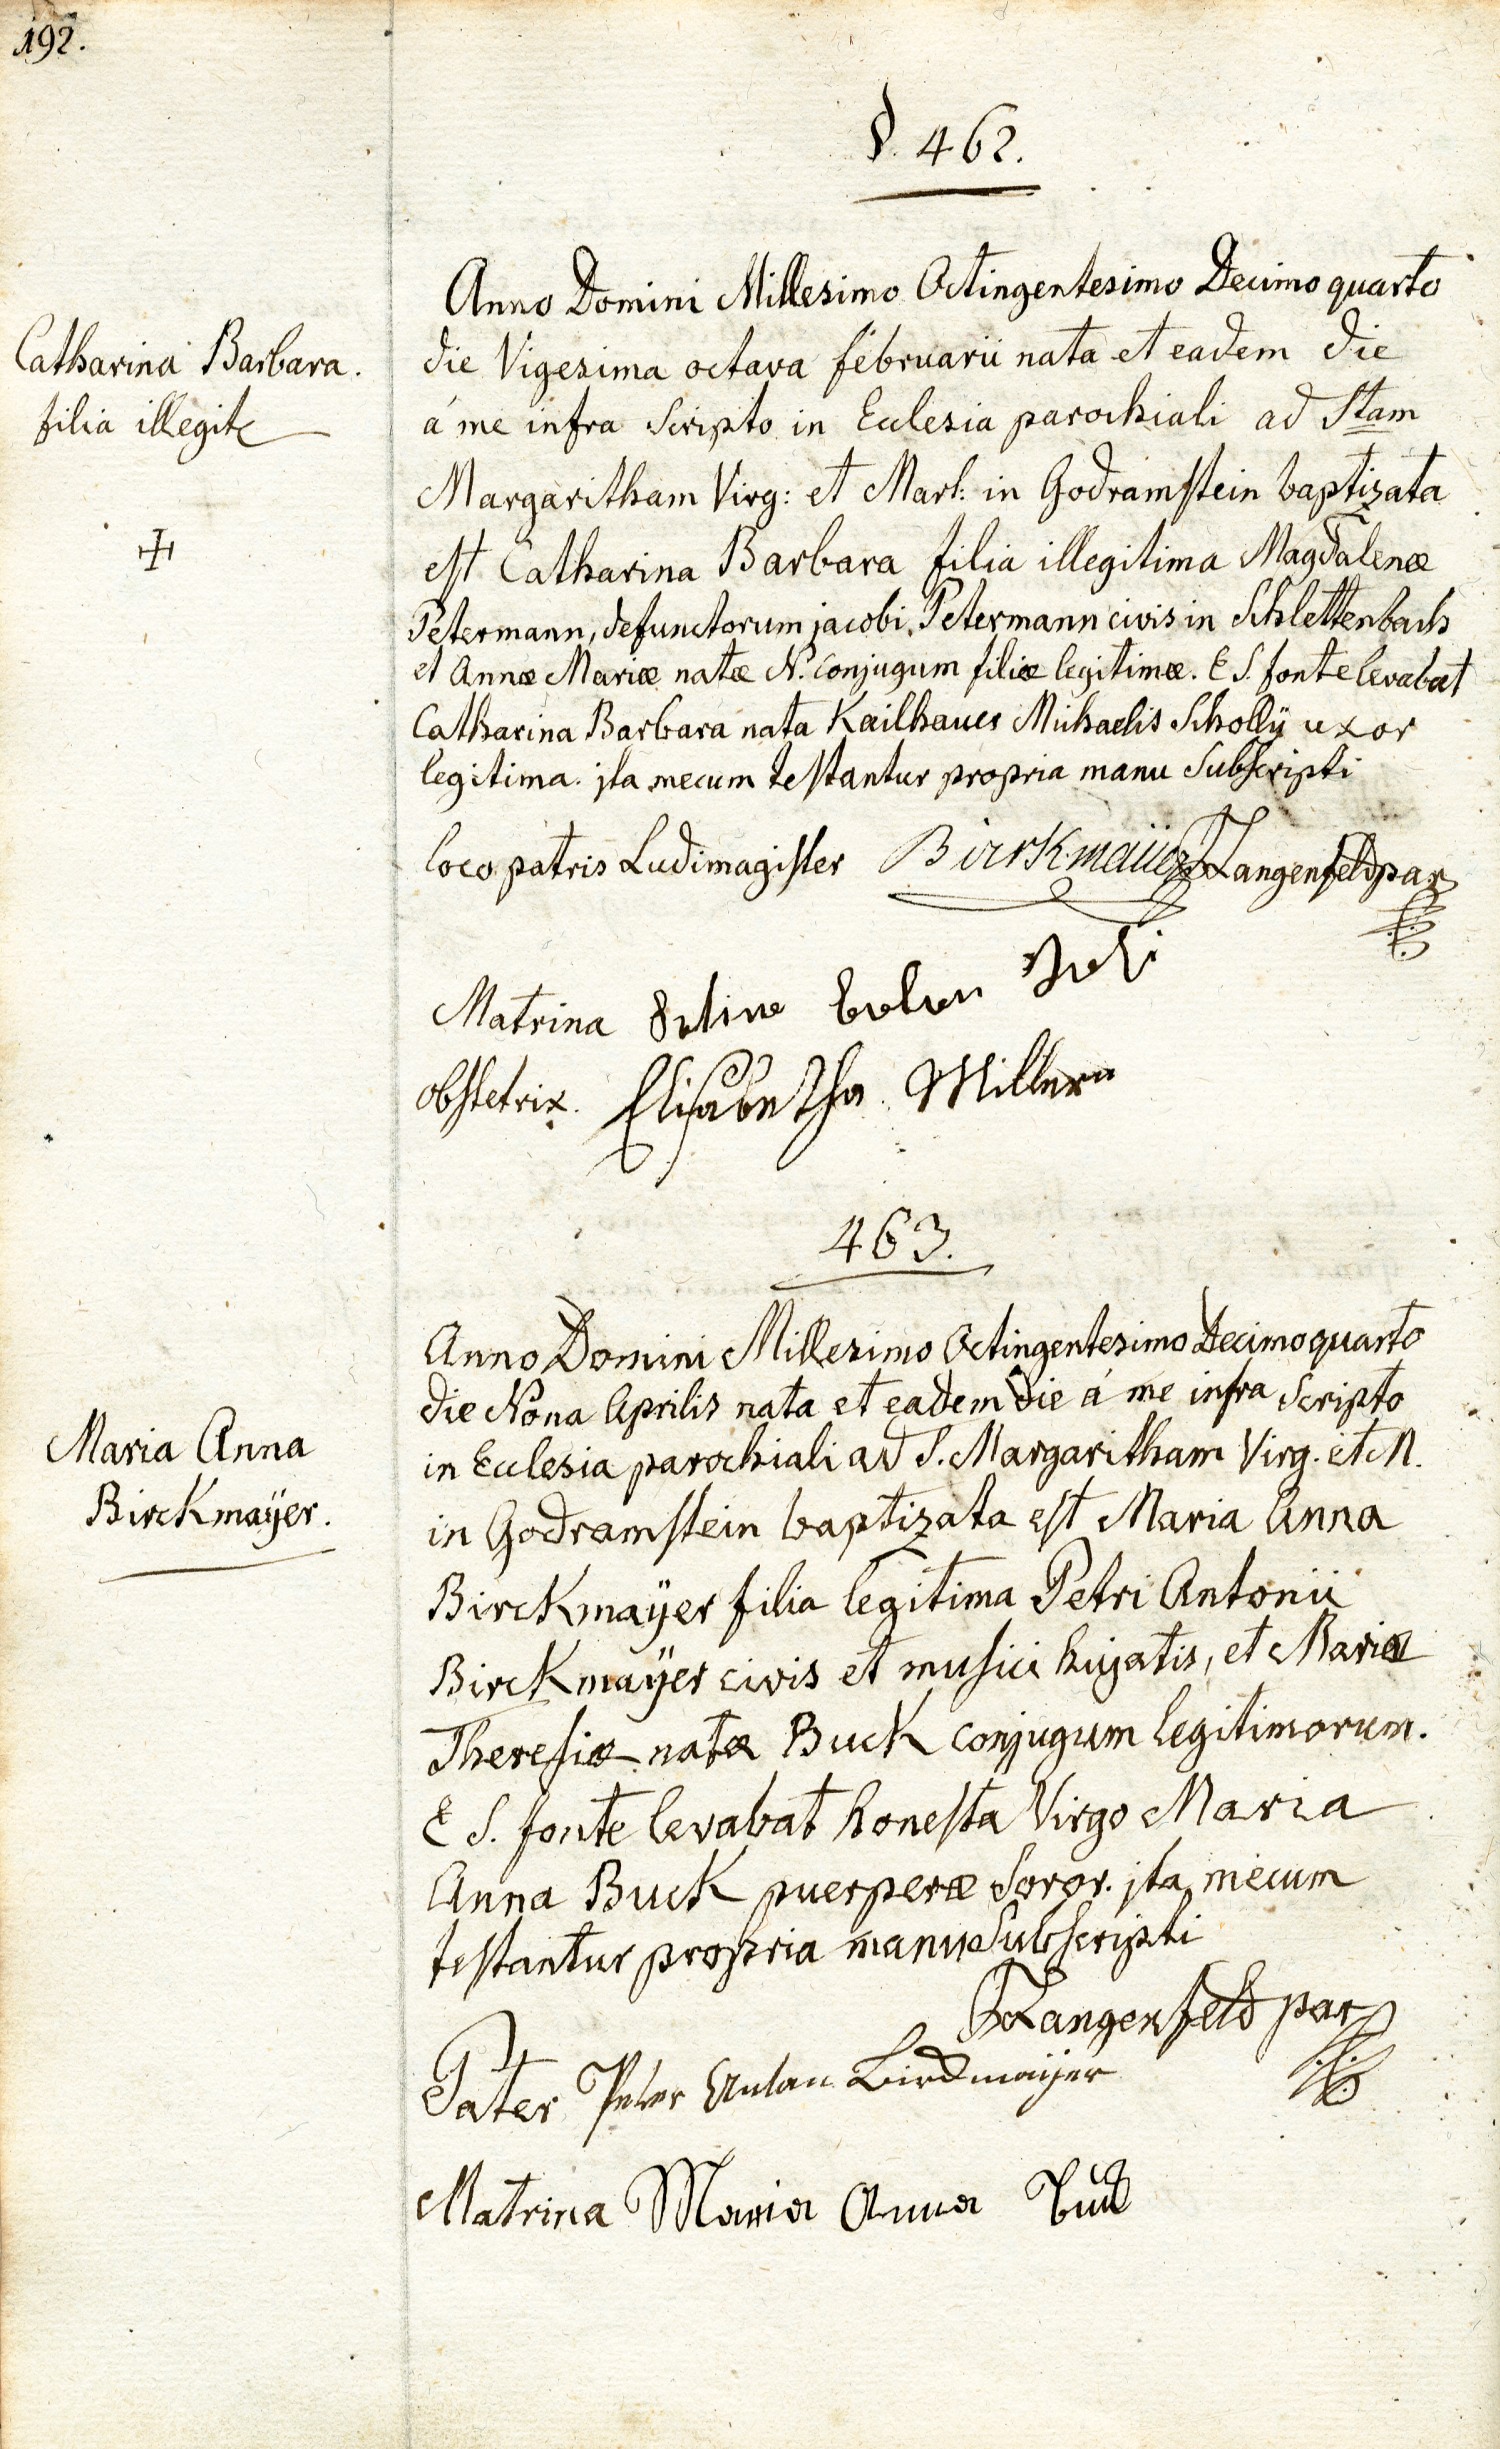 192.
§. 462.
Catharina Barbara.
filia illegit
Anno Domini Millesimo Octingentesimo Decimo quarto
die Vigesima octava februarii nata et eadem die
á me infra Scripto in Ecclesia parochiali ad Stam
Margaritham Virg: et Mart: in Godramstein baptizata
est Catharina Barbara filia illegitima Magdalenæ
Petermann, defunctorum jacobi Petermann civis in Schlettenbach
et Annæ Mariæ natæ N. conjugum filiæ legitimæ. E S. fonte levabat
Catharina Barbara nata Kailhauer Michaelis Scholly uxor
legitima. jta mecum testantur propria manu Subscripti
loco patris Ludimagister Birkmaÿer Langenfeld par
Matrina
obstetrix. Elisabetha Millern
463.
Maria Anna
Birckmaÿer.
Anno Domini Millesimo Octingentesimo Decimo quarto
die Nona Aprilis nata et eadem die á me infra Scripto
in Ecclesia parochiali ad S. Margaritham Virg. et M.
in Godramstein baptizata est Maria Anna
Birckmaÿer filia legitima Petri Antonii
Birckmaÿer civis et musici hujatis, et Mariæ
Theresiæ natæ Buck conjugum legitimorum.
E S. fonte levabat honesta Virgo Maria
Anna Buck puerperæ Soror. jta mecum
testantur propria manu Subscripti
Langenfeld par
Pater Peter Antan Birckmaÿer
Matrina Maria Anna Buck